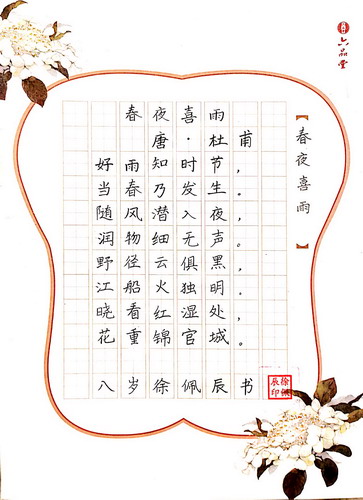 六品堂
【春夜喜雨】
春夜喜雨
唐·杜甫
好雨知时节，
当春乃发生。
随风潜入夜，
润物细无声。
野径云俱黑，
江船火独明。
晓看红湿处，
花重锦官城。
八岁徐佩辰书
徐佩辰印